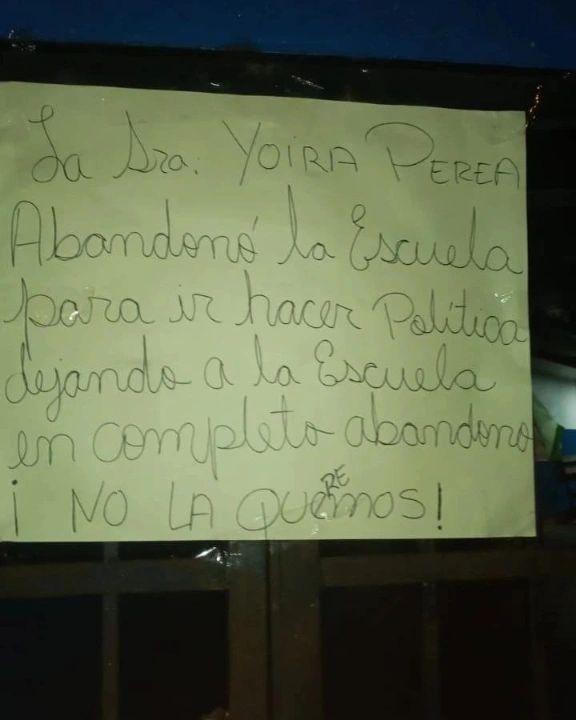 La Sra. YOIRA PEREA
Abandonó la Escuela
para ir hacer Política
dejando a la Escuela
en completo abandono
¡ NO LA QUEREMOS!